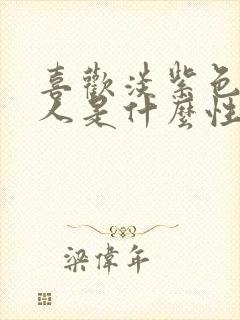 喜歡淡紫色
人是什麼性
梁偉年